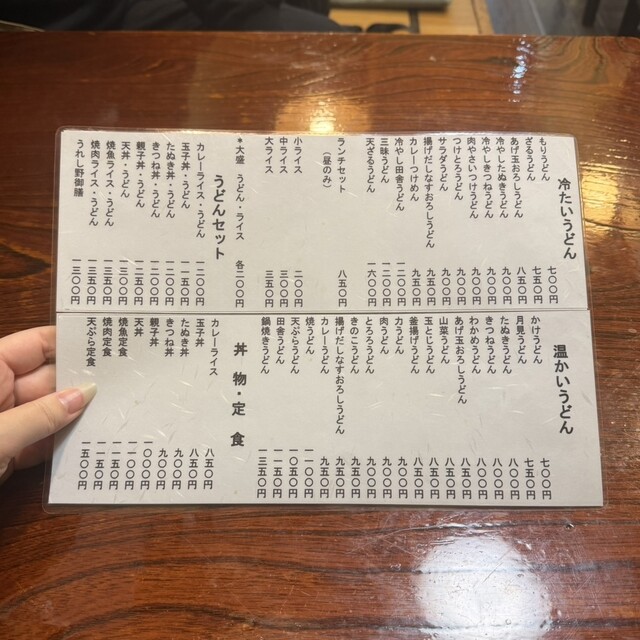 冷たいうどん
もりうどん 七〇〇円
ざるうどん 七五〇円
あげ玉おろしうどん 八五〇円
冷やしたぬきうどん 九〇〇円
冷やしきつねうどん 九〇〇円
肉やさいつけうどん 九〇〇円
つけとろうどん 九〇〇円
サラダうどん 九〇〇円
揚げだしなすおろしうどん 九五〇円
カレーつけめん 九五〇円
冷やし田舎うどん 一二〇〇円
三味うどん 一二〇〇円
天ざるうどん 一六〇〇円
ランチセット 八五〇円
(昼のみ)
小ライス 二〇〇円
中ライス 三〇〇円
大ライス 三五〇円
*大盛 うどん・ライス 各二〇〇円
うどんセット
カレーライス・うどん 一二〇〇円
玉子丼・うどん 一一五〇円
たぬき丼・うどん 一二〇〇円
きつね丼・うどん 一二〇〇円
親子丼・うどん 一二五〇円
天丼・うどん 一三〇〇円
焼魚ライス・うどん 一三五〇円
焼肉ライス・うどん 一三五〇円
うれし野御膳 一三〇〇円
温かいうどん
かけうどん 七〇〇円
月見うどん 七五〇円
たぬきうどん 八〇〇円
きつねうどん 八〇〇円
わかめうどん 八〇〇円
あげ玉おろしうどん 八五〇円
山菜うどん 八五〇円
玉とじうどん 八五〇円
釜揚げうどん 八五〇円
力うどん 九〇〇円
肉うどん 九〇〇円
とろろうどん 九〇〇円
きのこうどん 九〇〇円
揚げだしなすおろしうどん 九五〇円
カレーうどん 九五〇円
焼うどん
天ぷらうどん 一〇五〇円
田舎うどん 一一五〇円
鍋焼きうどん 一三五〇円
丼物・定食
カレーライス 八五〇円
玉子丼 八五〇円
たぬき丼 九〇〇円
きつね丼 九〇〇円
親子丼 一〇〇〇円
天丼 一一〇〇円
焼魚定食 一一五〇円
焼肉定食 一一五〇円
天ぷら定食 一五〇〇円